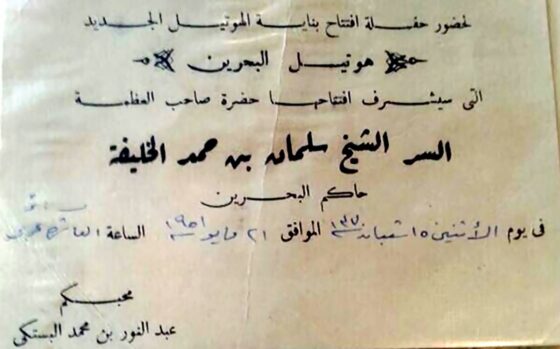 لحضور حفلة افتتاح بناية الهوتيل الجديد
هوتيل البحرين
التى سيشرف افتتاحها حضرة صاحب العظمة
السر الشيخ سلمان بن حمد الخليفة
حاكم البحرين
فى يوم الأثنين ١٥ شعبان ١٣٧٠ الموافق ٢١ مايو ١٩٥١ الساعة
محبكم
عبد النور بن محمد البستكى